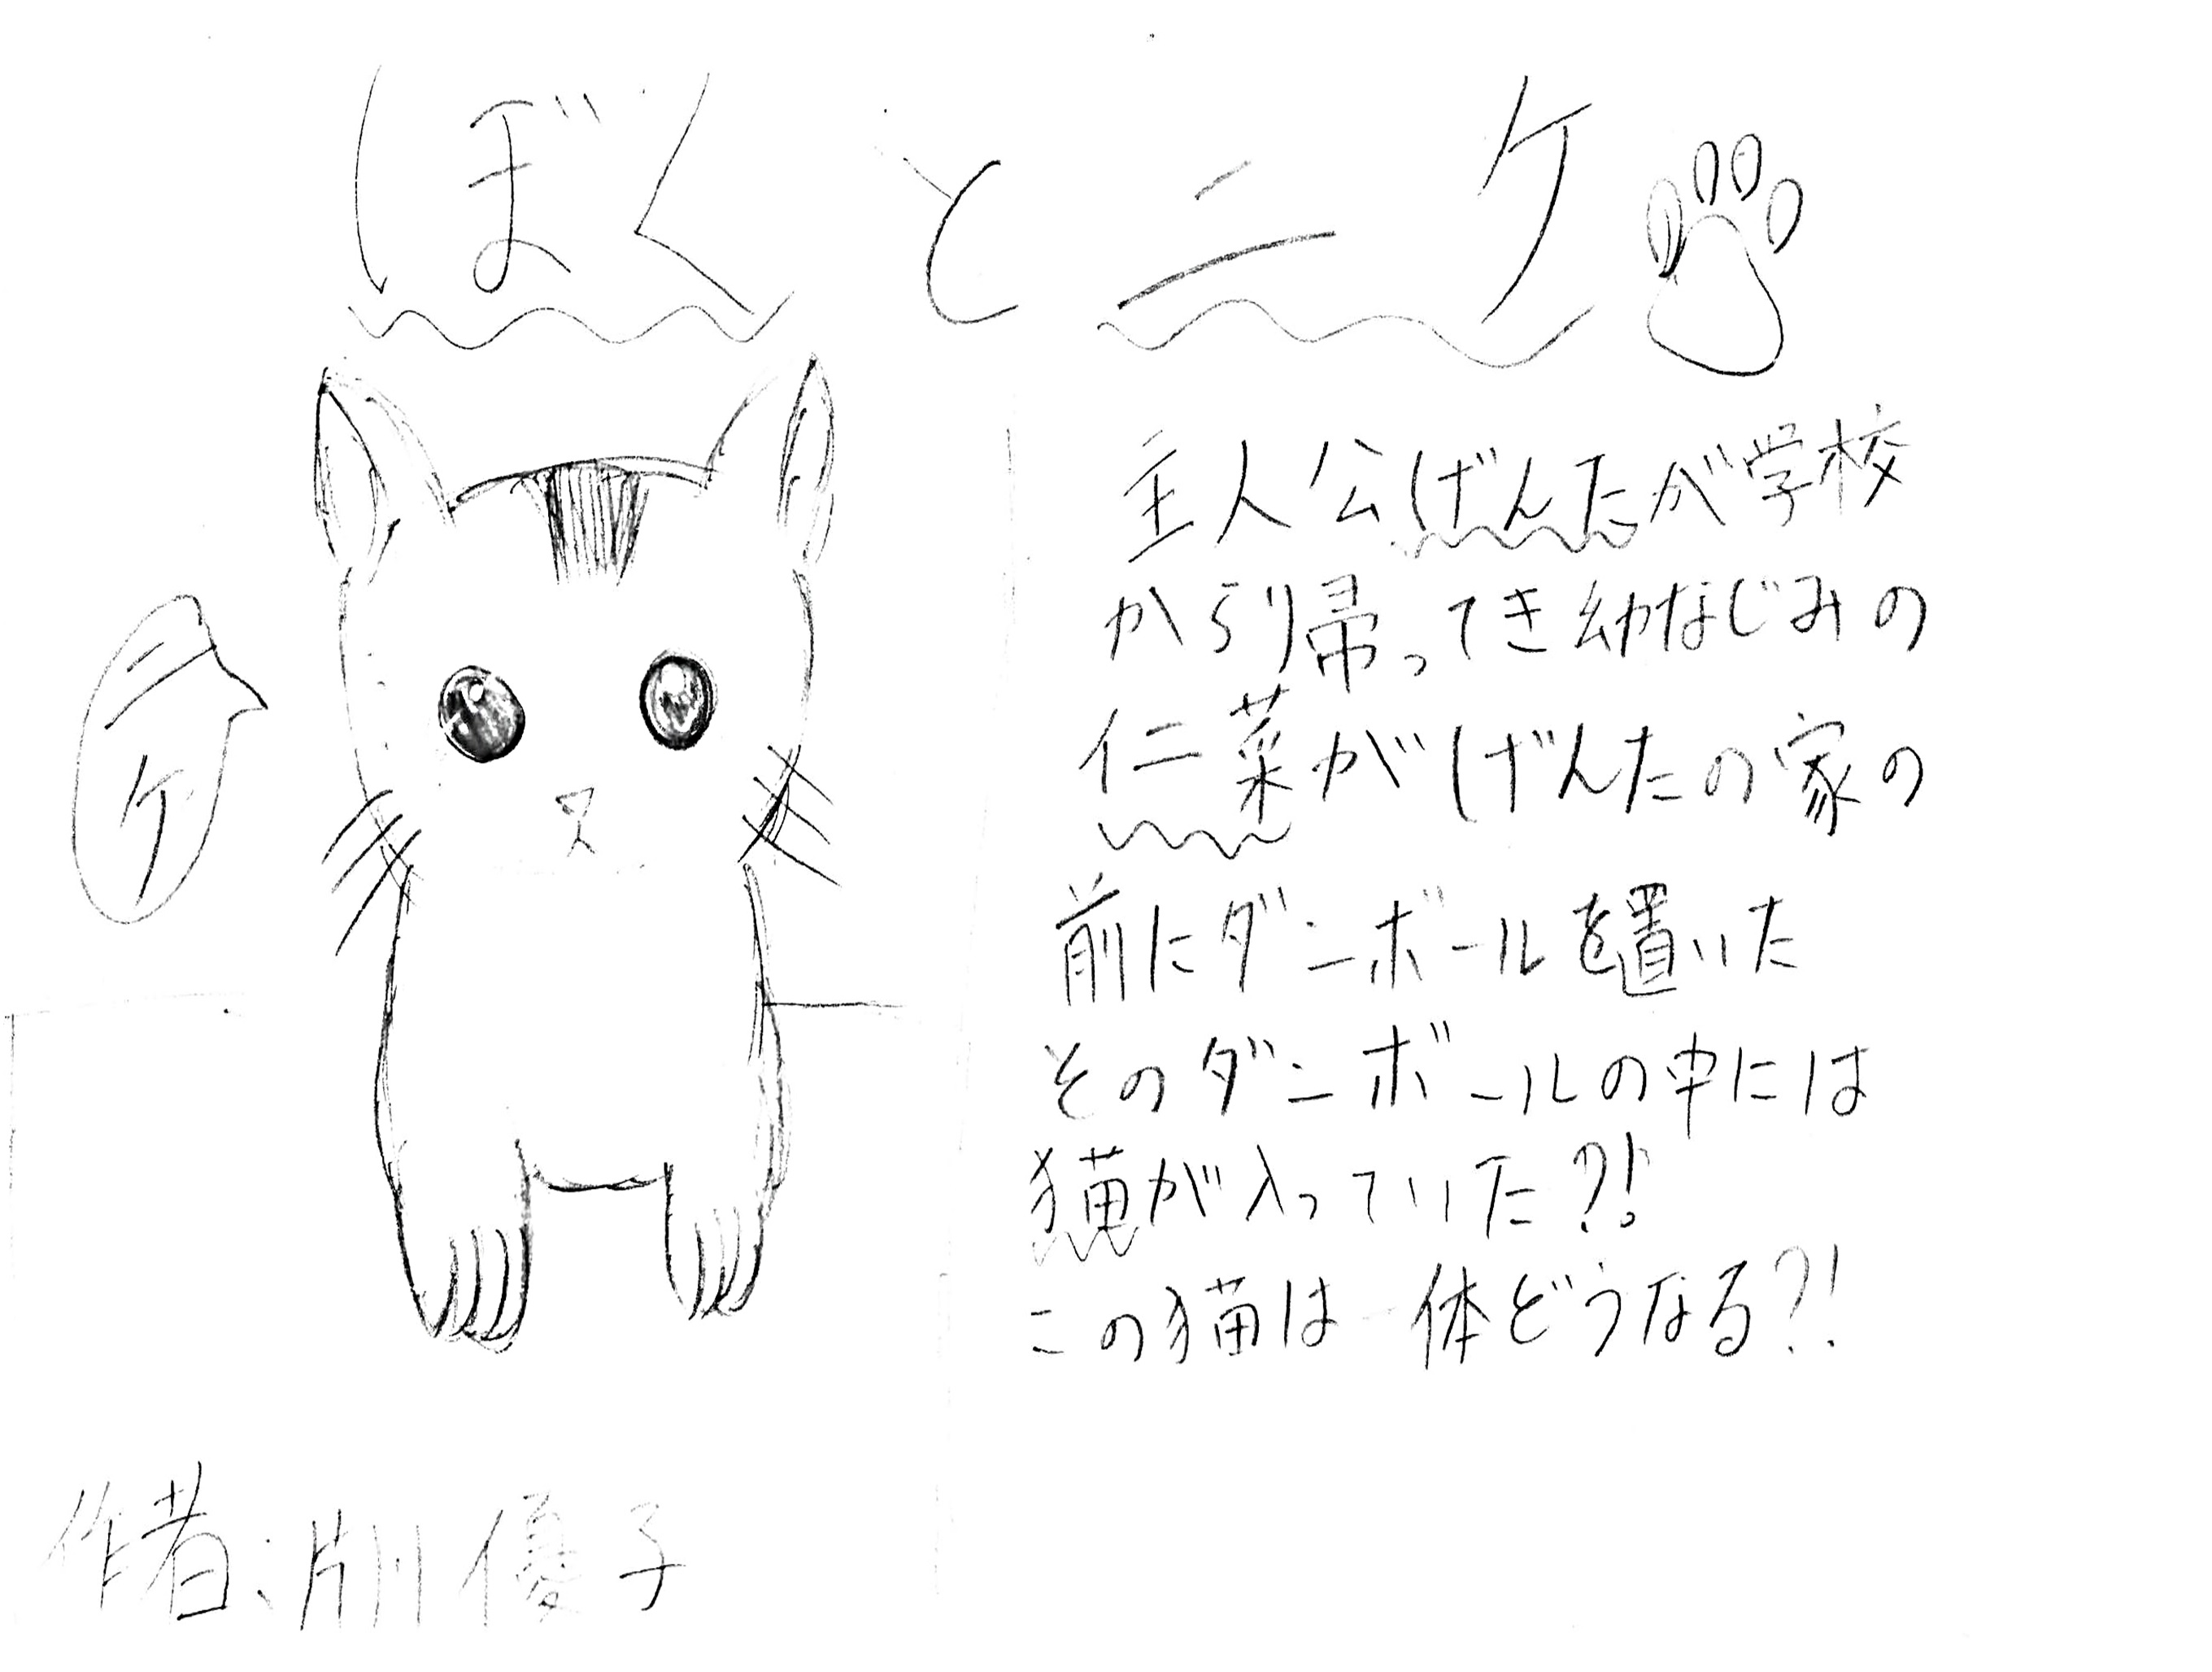 ぼくとニケ
主人公げんたが学校
から帰ってき幼なじみの
仁菜がげんたの家の
前にダンボールを置いた
そのダンボールの中には
猫が入っていた?!
この猫は一体どうなる?!
ニケ
作者:片川優子